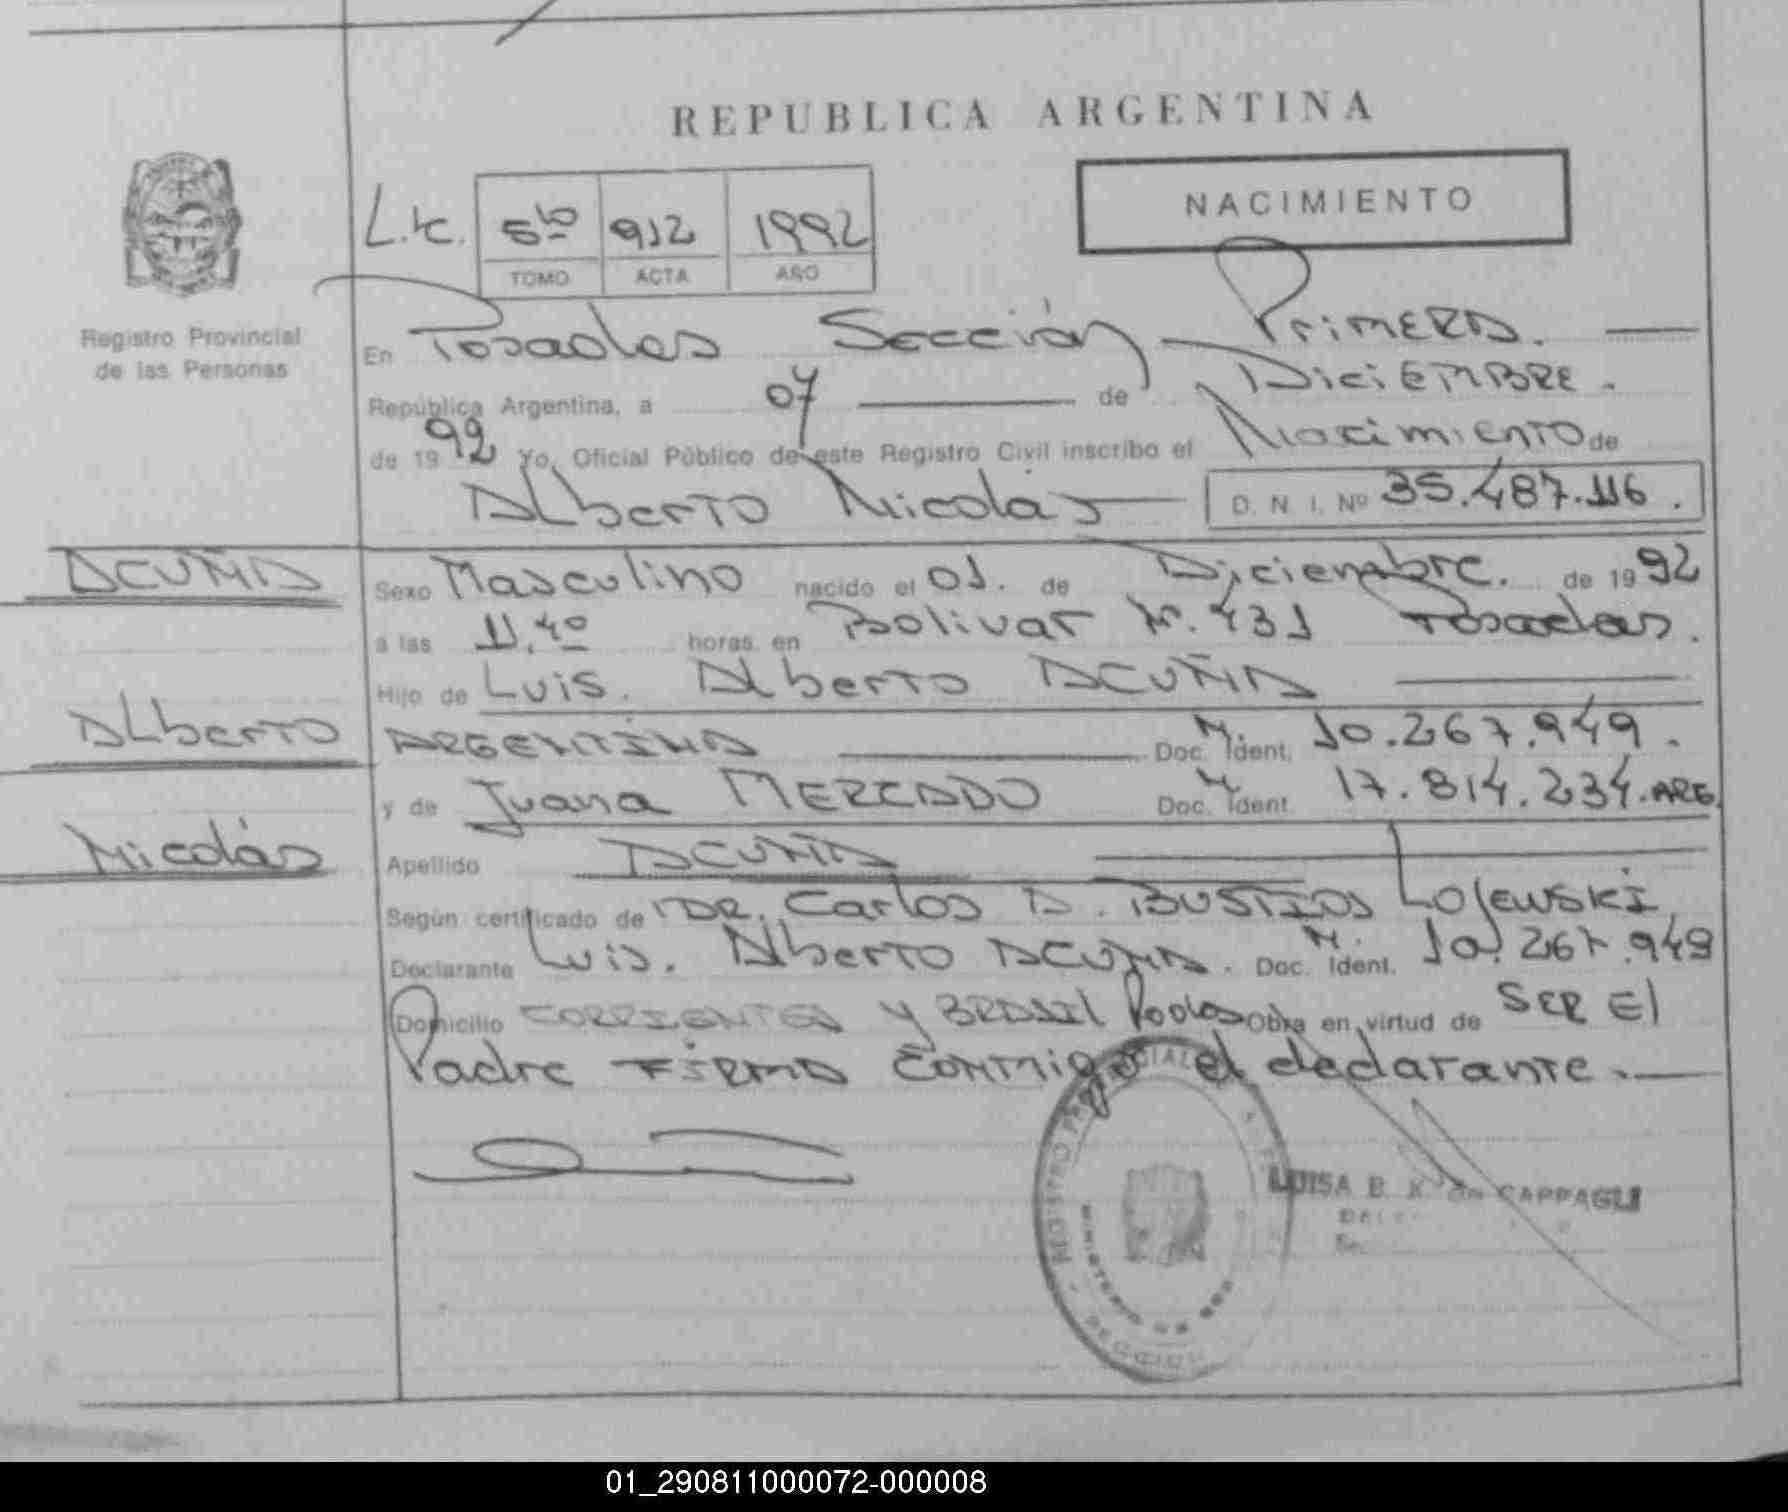 REPUBLICA ARGENTINA
NACIMIENTO
5to 912 1992
TOMO ACTA AÑO
Registro Provincial
de las Personas
En Posadas Sección Primera.
República Argentina, a 07 de Diciembre.
de 1992 Yo, Oficial Público de este Registro Civil inscribo el Nacimiento de
Alberto Nicolás D. N. I. Nº 35.487.116.
ACUÑA
Sexo Masculino nacido el 01. de Diciembre. de 1992
a las 11.40 horas en Bolivar N. 431 Posadas.
Hijo de Luis. Alberto ACUÑA
Alberto
ARGENTINA Doc. M. Ident. 10.267.949.
y de Juana MERCADO Doc. Ident. 17.814.234. ARG.
Nicolás
Apellido ACUÑA
Según certificado de DR. Carlos A. BUSTIOS Lojewski
Declarante Luis. Alberto ACUÑA. Doc. M. Ident. 10.267.949
Domicilio CORRIENTES y BRASIL Obra en virtud de SER El
Padre FIRMA conmigo el declarante.
REGISTRO
MINISTERIO DE
LUISA B. K. de CAPPAGLI
01_290811000072-000008